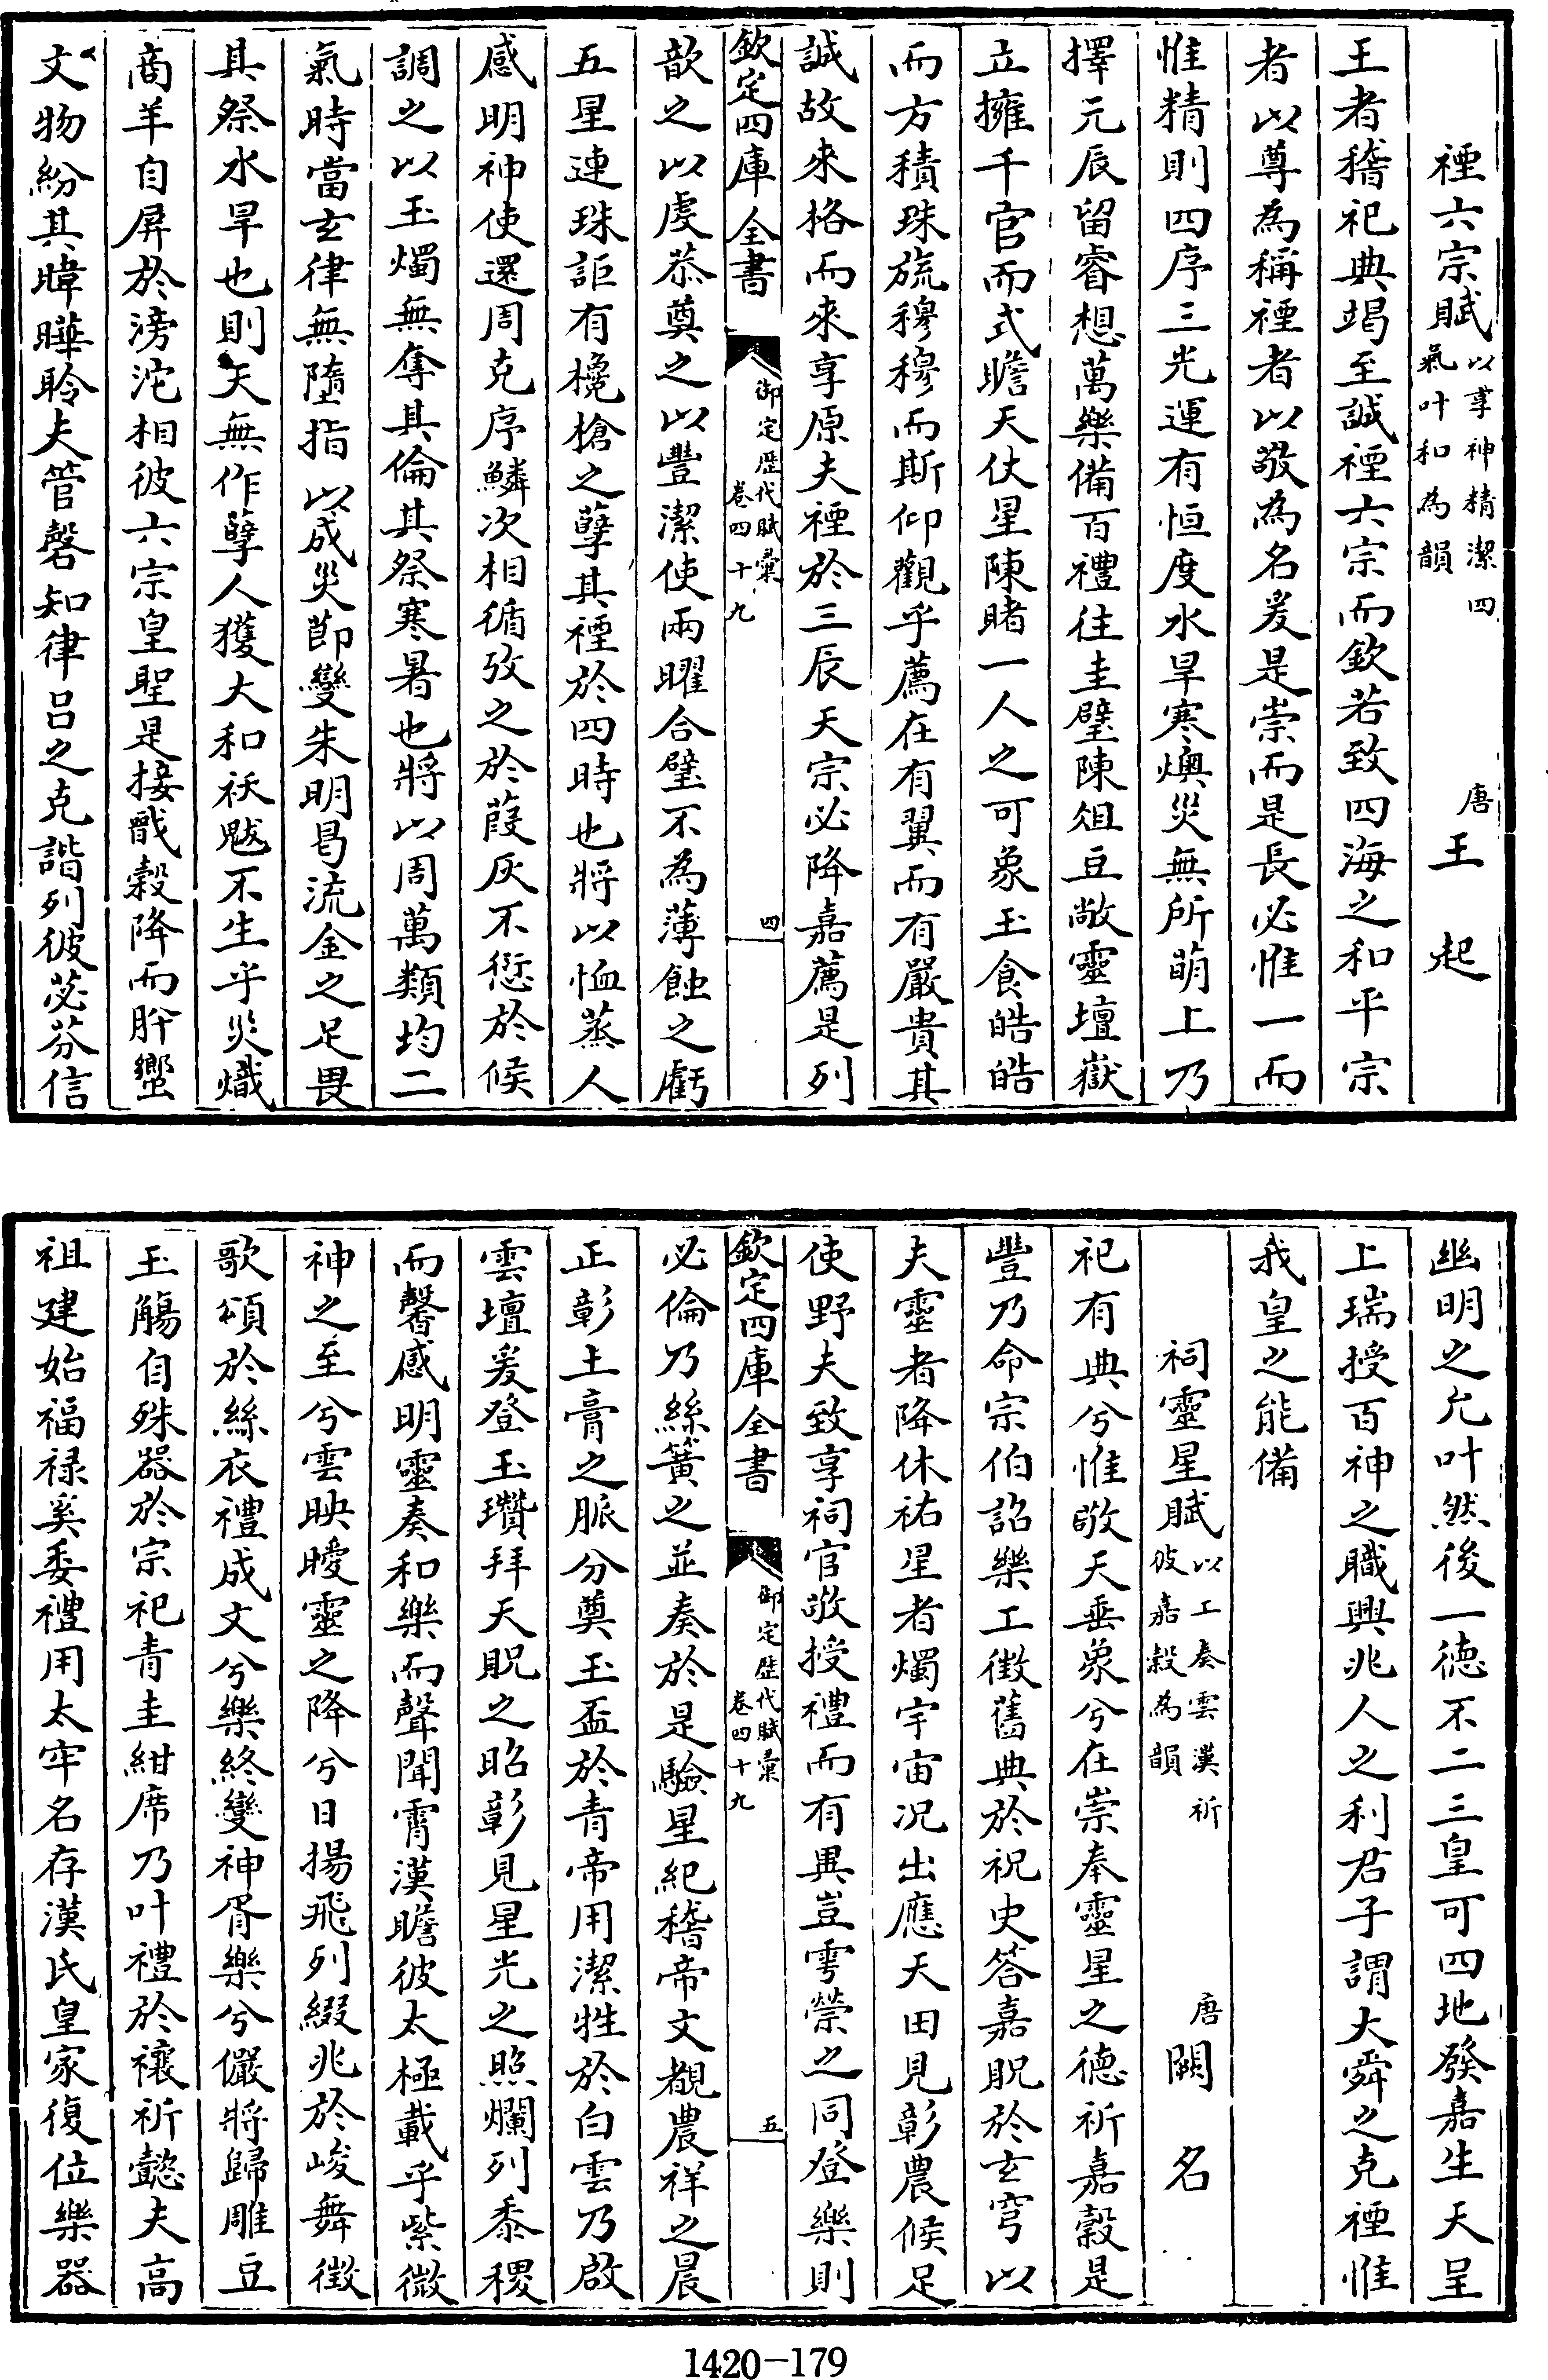 禋六宗賦以享神精潔四氣叶和為韻 唐王起
王者稽祀典竭至誠禋六宗而欽若致四海之和平宗
者以尊為稱禋者以敬為名爰是崇而是長必惟一而
惟精則四序三光運有恒度水旱寒燠災無所萌上乃
擇元辰留睿想萬樂備百禮往圭璧陳俎豆敞靈壇嶽
立擁千官而式瞻天仗星陳睹一人之可象玉食皓皓
而方積珠旒穆穆而斯仰觀乎薦在有翼而有嚴貴其
誠故來格而來享原夫禋於三辰天宗必降嘉薦是列
欽定四庫全書 御定歷代賦彙 卷四十九 四
歆之以虔恭奠之以豐潔使兩曜合璧不為薄蝕之虧
五星連珠詎有欃槍之孽其禋於四時也將以恤蒸人
感明神使還周克序鱗次相循攷之於葭灰不愆於候
調之以玉燭無奪其倫其祭寒暑也將以周萬類均二
氣時當玄律無墮指以成災節變朱明曷流金之足畏
其祭水旱也則天無作孽人獲大和祅魃不生乎災熾
商羊自屏於滂沱相彼六宗皇聖是接戩穀降而肸蠁
文物紛其暐曄聆夫管磬知律呂之克諧列彼苾芬信
幽明之允叶然後一德不二三皇可四地發嘉生天呈
上瑞授百神之職興兆人之利君子謂大舜之克禋惟
我皇之能備
祠靈星賦以工奏雲漢祈彼嘉穀為韻 唐闕名
祀有典兮惟敬天垂象兮在崇奉靈星之德祈嘉穀是
豐乃命宗伯詔樂工徵舊典於祝史答嘉貺於玄穹以
夫靈者降休祐星者燭宇宙况出應天田見彰農候足
使野夫致享祠官敬授禮而有異豈雩禜之同登樂則
欽定四庫全書 御定歷代賦彙 卷四十九 五
必倫乃絲簧之並奏於是驗星紀稽帝文覩農祥之晨
正彰土膏之脈分奠玉盃於青帝用潔牲於白雲乃啟
雲壇爰登玉瓚拜天貺之昭彰見星光之照爛列黍稷
而馨感明靈奏和樂而聲聞霄漢瞻彼太極載乎紫微
神之至兮雲映曖靈之降兮日揚飛列綴兆於峻舞徵
歌頌於絲衣禮成文兮樂終變神胥樂兮儼將歸雕豆
玉觴自殊器於宗祀青圭紺席乃叶禮於禳祈懿夫高
祖建始福祿奚委禮用太牢名存漢氏皇家復位樂器
1420-179